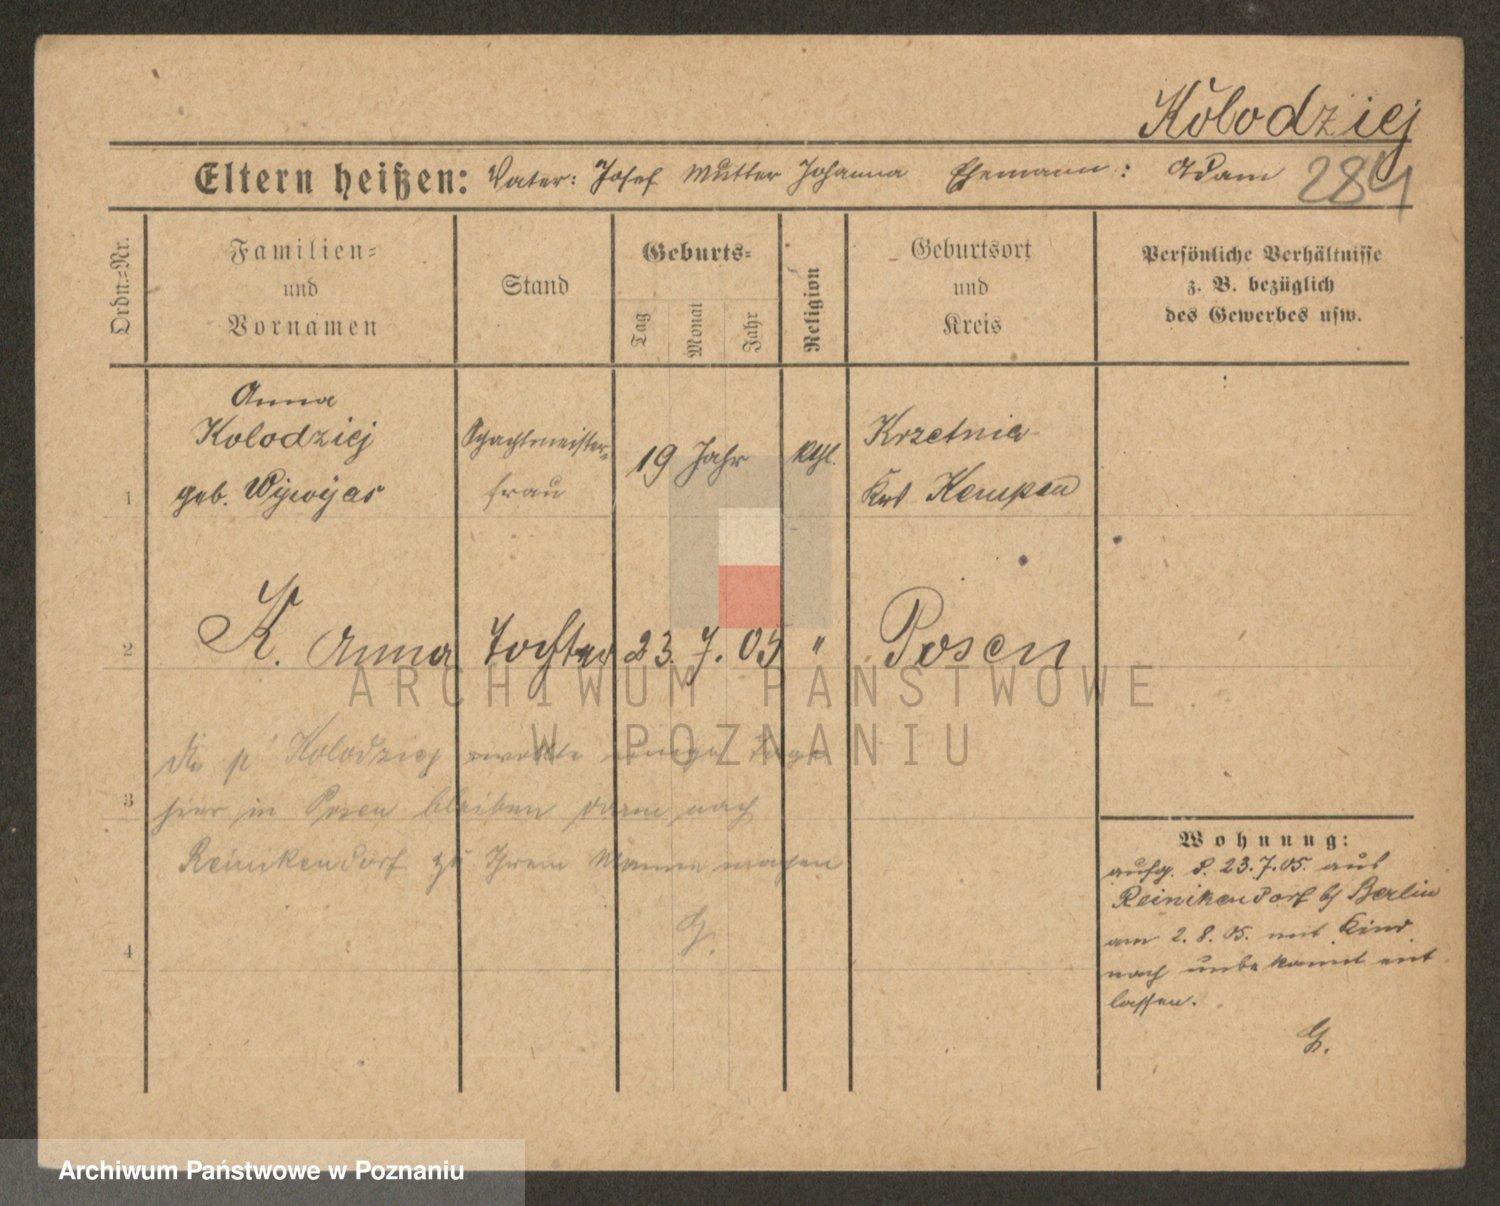 Kolodziej
Eltern heißen: Vater: Josef Mutter Johanna Ehemann: Adam 284
Ordn.=Nr.
Familien=
und
Vornamen
Stand
Geburts=
Tag
Monat
Jahr
Religion
Geburtsort
und
Kreis
Persönliche Verhältnisse
z. B. bezüglich
des Gewerbes usw.
1
Anna
Kolodziej
geb. Wijwijas
Schachtmeister=
frau
19 Jahr
kthl.
Krzetnia
Krs Kempen
2
K. Anna
Tochter
23. 7. 05
"
Posen
3
die p Kolodziej wollte einige Tage
hier in Posen bleiben dann nach
Reinikendorf zu Ihrem Manne machen
G.
4
Wohnung:
aufg. d. 23.7.05. aus
Reinikendorf b/ Berlin
am 2. 8. 05. mit Kind
nach unbekannt ent
lassen.
G.
ARCHIWUM PAŃSTWOWE
W POZNANIU
Archiwum Państwowe w Poznaniu